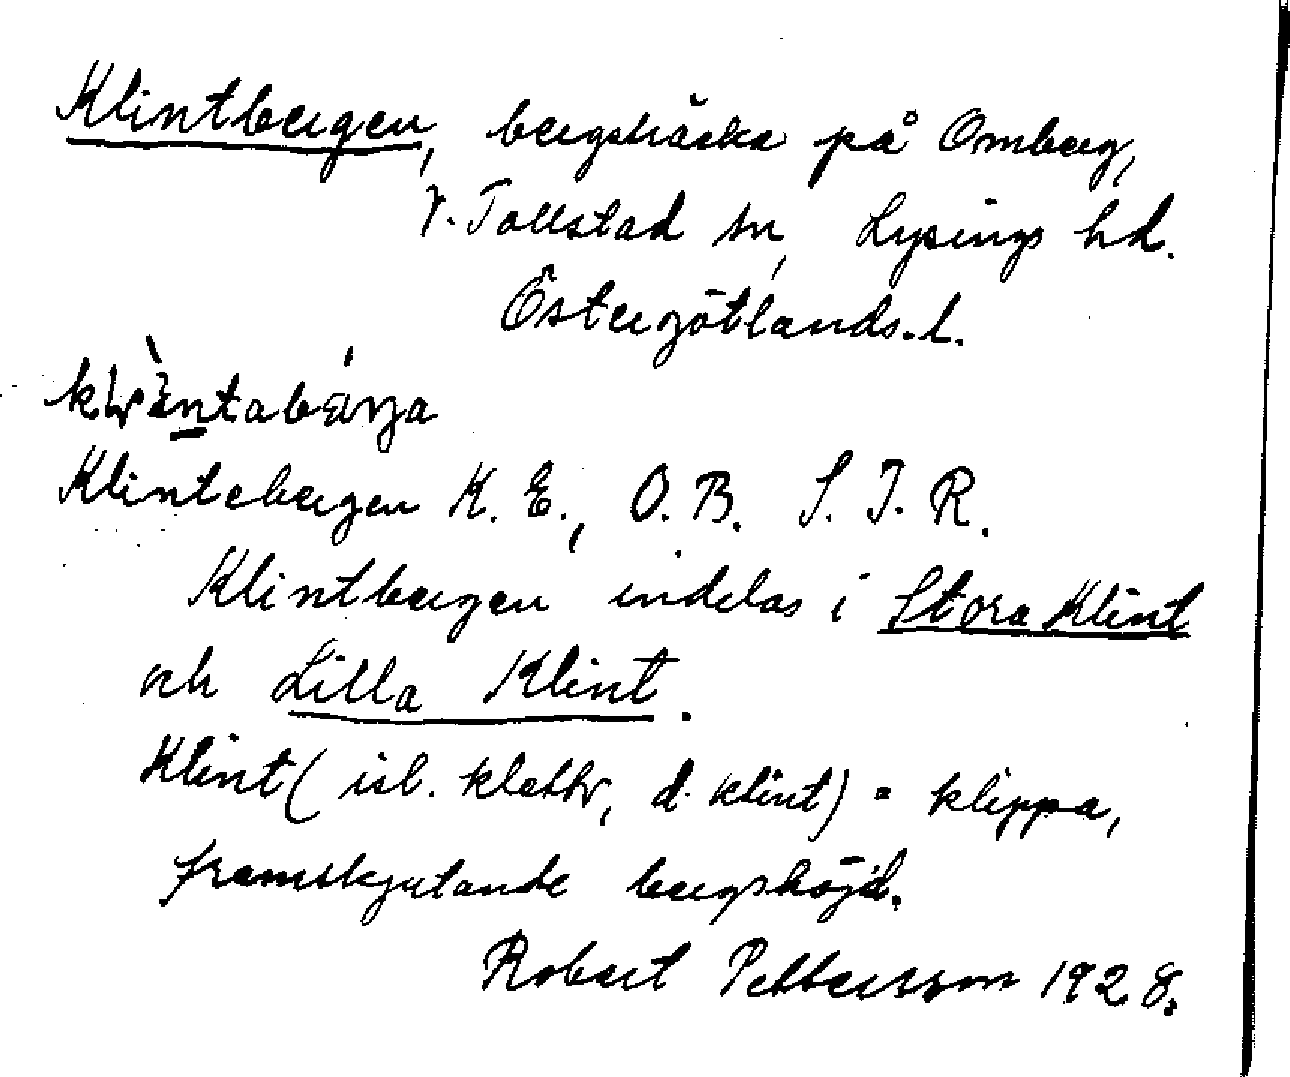 Klintbergen, bergsträcka på Omberg,
V. Tollstad sn, Lysings hd.
Östergötlands. l.
Klintebergen K. E., O. B. S. J. R.
Klintbergen indelas i Stora Klint
och Lilla Klint.
Klint (isl. klettr, d. klint) = klippa,
framskjutande bergshöjd.
Robert Pettersson 1928.